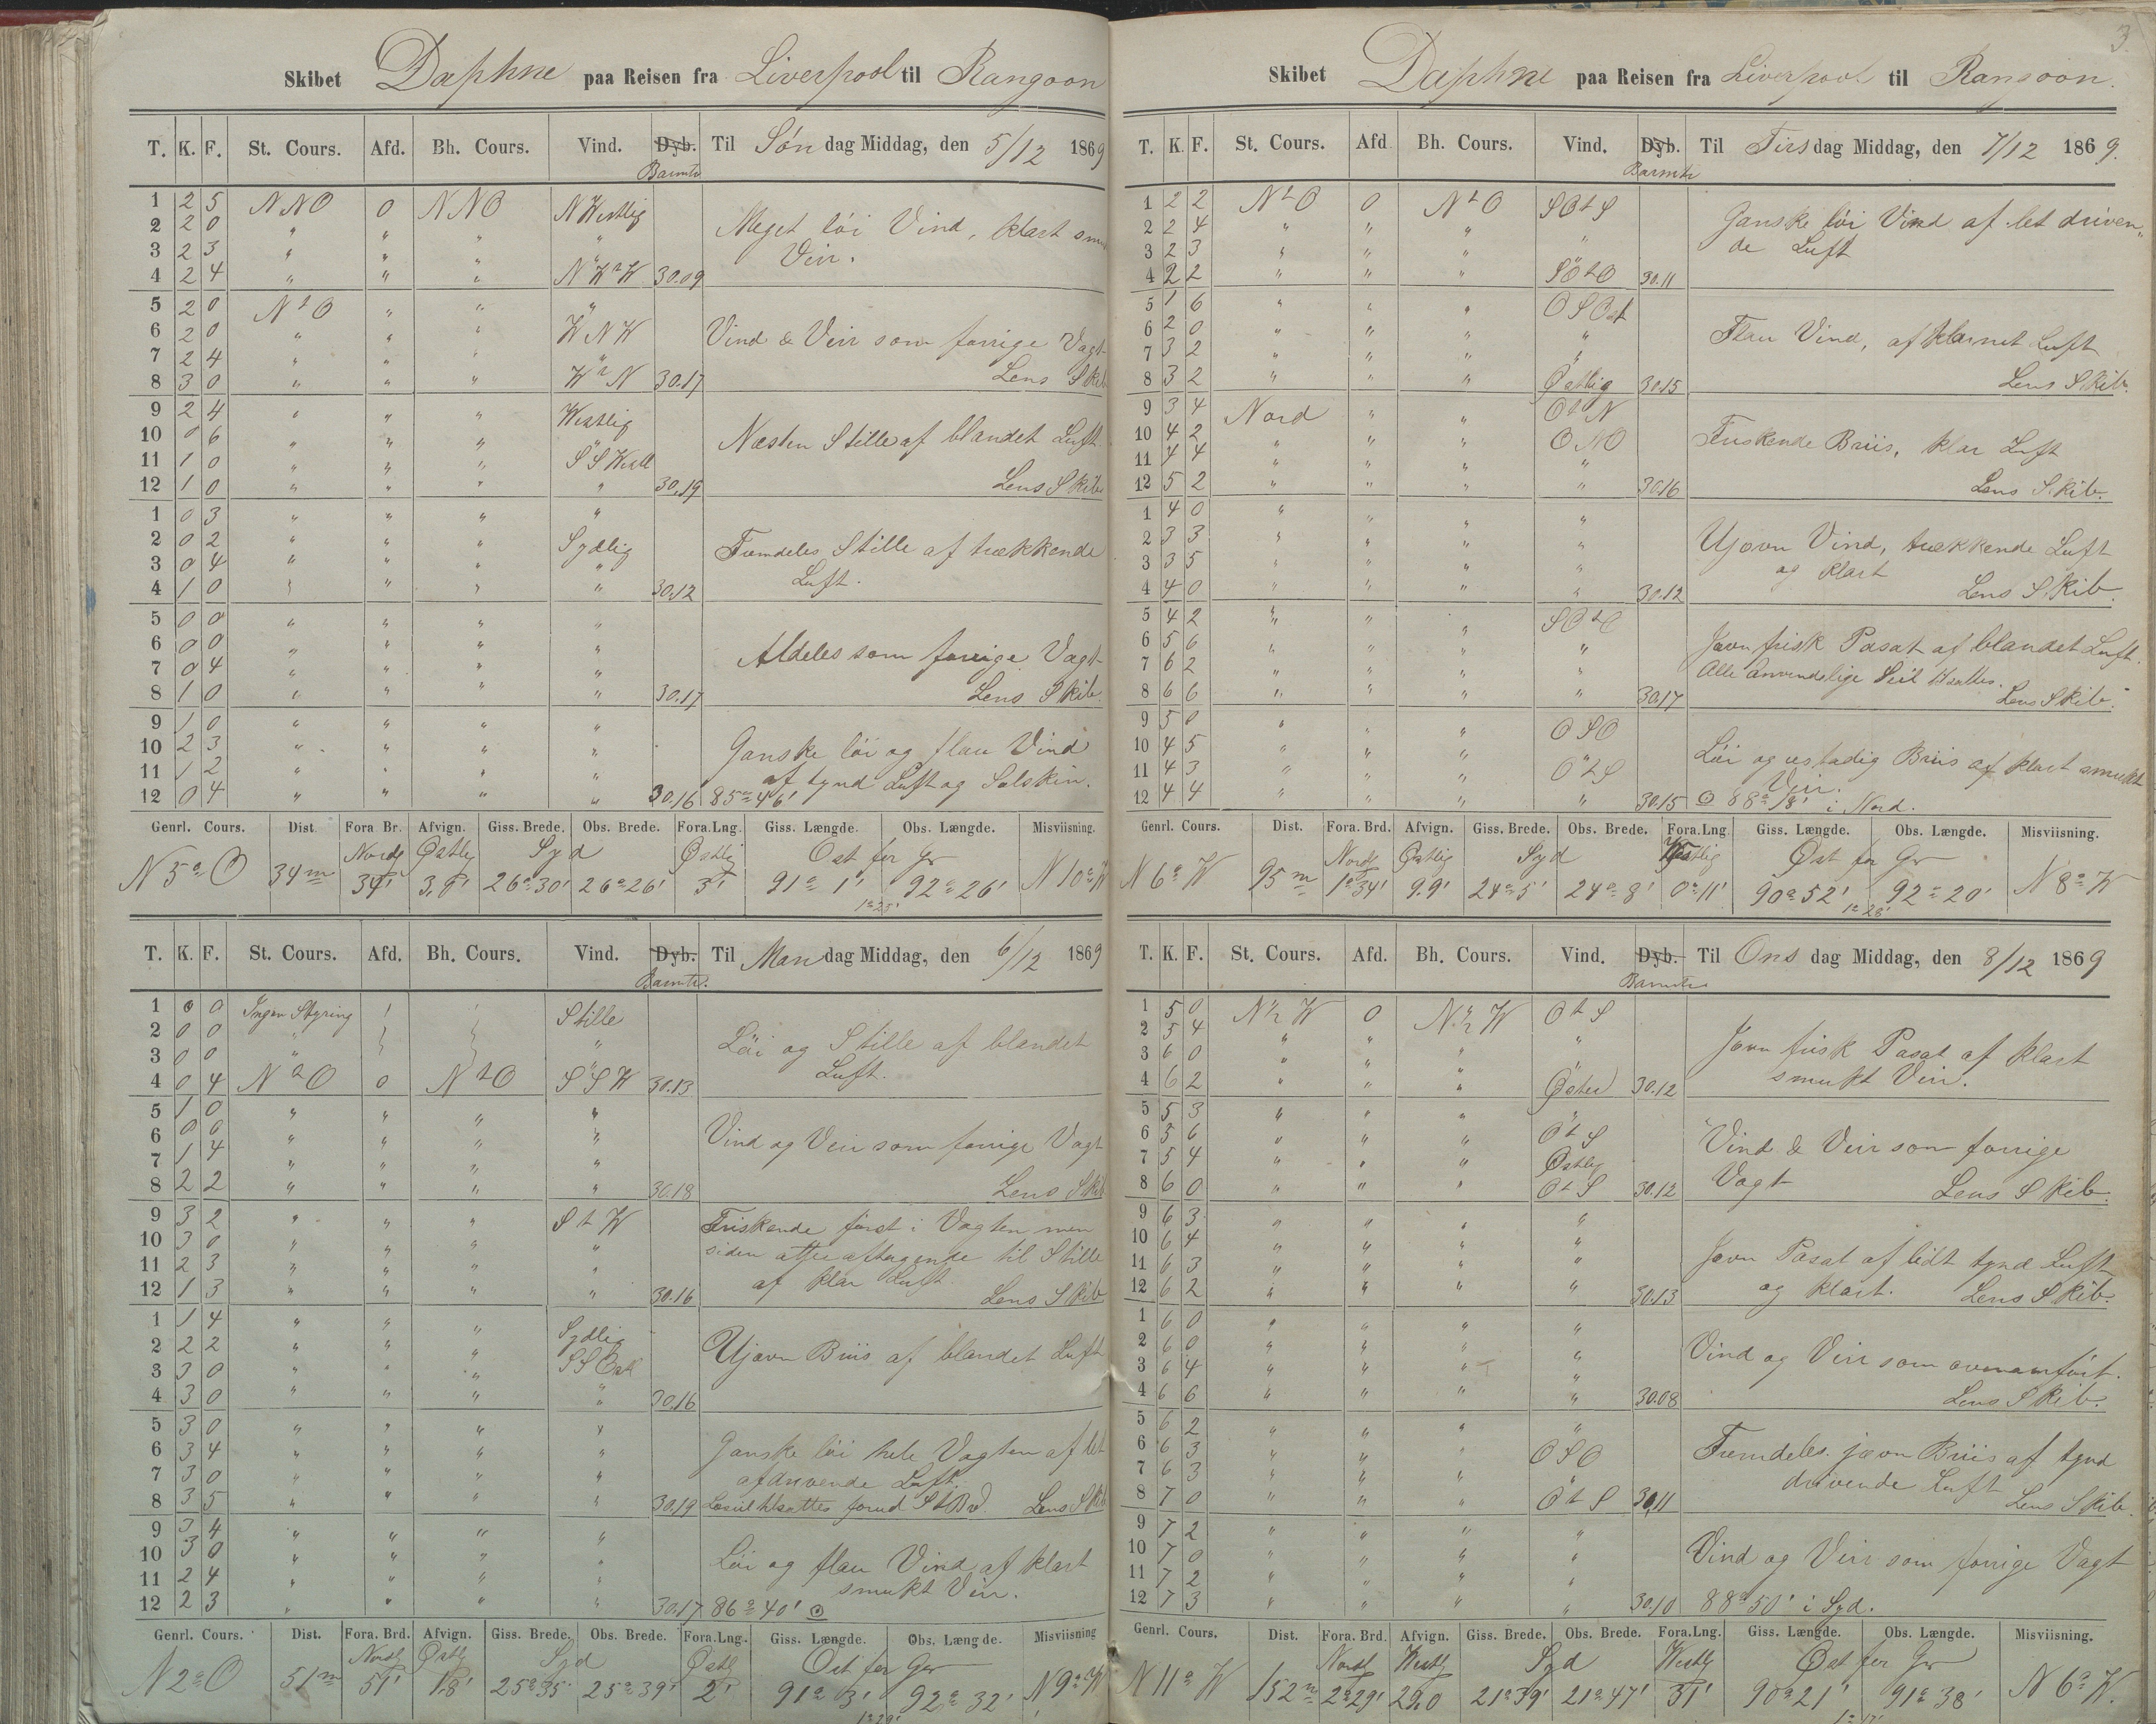 Skibet Daphne paa Reisen fra Liverpool til Rangoon
T. K. F. St. Cours. Afd. Bh. Cours. Vind. Dyb. Til Søndag Middag, den 5/12 1869
Barmtr
1 2 5 NNO 0 NNO NWestlig
2 2 0 " " " "
3 2 3 " " " "
4 2 4 " " " NWtW 30.09
Meget löi Vind, klart
Veir.
5 2 0 NtO " " "
6 2 0 " " " WNW
7 2 4 " " " "
8 3 0 " " " WtN 30.17
Vind & Veir som forrige Vagt
Lens Skib
9 2 4 " " " Westlig
10 0 6 " " " "
11 1 0 " " " SSWestl
12 1 0 " " " " 30.19
Næsten Stille af blandet Luft
Lens Skib
1 0 3 " " " "
2 0 2 " " " Sydlig
3 0 4 " " " "
4 1 0 " " " " 30.12
Fremdeles Stille af trækkende
Luft.
5 0 0 " " " "
6 0 0 " " " "
7 0 4 " " " "
8 1 0 " " " " 30.17
Aldeles som forrige Vagt
Lens Skib.
9 1 0 " " " "
10 2 3 " " " "
11 1 2 " " " "
12 0 4 " " " " 30.16
Ganske löi og flau Vind
af tynd Luft og Solskin.
85° 46'
Genrl. Cours. Dist. Fora. Br. Afvign. Giss. Brede. Obs. Brede. Fora.Lng. Giss. Længde. Obs. Længde. Misviisning.
Nordl Østlig Syd Østlig Ost for Gr
N 5° O 34m 34' 3,9' 26° 30' 26° 26' 3' 91° 1' 92° 26' N 10° W
1° 25'
T. K. F. St. Cours. Afd. Bh. Cours. Vind. Dyb. Til Mandag Middag, den 6/12 1869
Barmtr.
1 0 0 Ingen Styring Stille
2 0 0 " "
3 0 0 " "
4 0 4 NtO 0 NtO SSW 30.13
Löi og Stille af blandet
Luft.
5 1 0 " " " "
6 0 0 " " " "
7 1 4 " " " "
8 2 2 " " " " 30.18
Vind og Veir som forrige Vagt
Lens Skib
9 3 2 " " " StW
10 3 0 " " " "
11 2 3 " " " "
12 1 3 " " " " 30.16
Friskende först i Vagten men
siden atter aftagende til Stille
af klar Luft. Lens Skib
1 1 4 " " " Sydlig
2 2 2 " " " SSOstl
3 3 0 " " " "
4 3 0 " " " " 30.16
Ujævn Briis af blandet Luft
5 3 0 " " " "
6 3 4 " " " "
7 3 0 " " " "
8 3 5 " " " " 30.19
Ganske löi hele Vagten af let
afdrivende Luft.
forud StBd. Lens Skib
9 3 4 " " " "
10 3 0 " " " "
11 2 4 " " " "
12 2 3 " " " " 30.17
Löi og flau Vind af klart
smukt Veir.
86° 40' ⊙
Genrl. Cours. Dist. Fora. Brd. Afvign. Giss. Brede. Obs. Brede. Fora.Lng. Giss. Længde. Obs. Længde. Misviisning
Nordl Østl Syd Østl Ost for Gr
N 2° O 51m 51' 1.8' 25° 35' 25° 39' 2' 91° 3' 92° 32' N 9° W
1° 29'
3
Skibet Daphne paa Reisen fra Liverpool til Rangoon.
T. K. F. St. Cours. Afd Bh. Cours. Vind. Dyb. Til Tirsdag Middag, den 7/12 1869.
Barmtr
1 2 2 NtO 0 NtO SOtS
2 2 4 " " " "
3 2 3 " " " "
4 2 2 " " " SOtO 30.11
Ganske löi Vind af let driven"
de Luft
5 1 6 " " " OSOst
6 2 0 " " " "
7 3 2 " " " "
8 3 2 " " " Østlig 30.15
Flau Vind, af klarnet Luft
Lens Skib.
9 3 4 Nord " " OtN
10 4 2 " " " ONO
11 4 4 " " " "
12 5 2 " " " " 30.16
Friskende Briis, klar Luft
Lens Skib.
1 4 0 " " " "
2 3 3 " " " "
3 3 5 " " " "
4 4 0 " " " " 30.12
Ujævn Vind, trækkende Luft
og klart Lens Skib.
5 4 2 " " " SOtO
6 5 6 " " " "
7 6 2 " " " "
8 6 6 " " " " 30.17
Jævn frisk Pasat af blandet Luft.
Alle Anvendelige Seil tilsattes.
Lens Skib.
9 5 0 " " " OSO
10 4 5 " " " "
11 4 3 " " " OtS
12 4 4 " " " " 30.15
Löi og ustadig Briis af klart smukt
Veir.
⊙ 88° 18' i Nord.
Genrl. Cours. Dist. Fora. Brd. Afvign. Giss. Brede. Obs. Brede. Fora.Lng. Giss. Længde. Obs. Længde. Misviisning.
Nordl Østlig Syd Westlig Øst for Gr
N 6° W 95m 1° 34' 9.9' 24° 5' 24° 8' 0° 11' 90° 52' 92° 20' N 8° W
1° 28'
T. K. F. St. Cours. Afd. Bh. Cours. Vind. Dyb. Til Onsdag Middag, den 8/12 1869
Barmtr
1 5 0 N½W 0 N½W OtS
2 5 4 " " " "
3 6 0 " " " "
4 6 2 " " " Østen 30.12
Jævn frisk Pasat af klart
smukt Veir.
5 5 3 " " " "
6 5 6 " " " OtS
7 5 4 " " " Østlig
8 6 0 " " " OtS 30.12
Vind & Veir som forrige
Vagt Lens Skib.
9 6 3 " " " "
10 6 4 " " " "
11 6 3 " " " "
12 6 2 " " " " 30.13
Jævn Pasat af lidt tynd Luft
og klart. Lens Skib.
1 6 0 " " " "
2 6 0 " " " "
3 6 4 " " " "
4 6 6 " " " " 30.08
Vind og Veir som ovenanfört.
Lens Skib.
5 6 2 " " " "
6 6 3 " " " OSO
7 6 3 " " " "
8 7 0 " " " OtS 30,11
Fremdeles jævn Briis af tynd
drivende Luft Lens Skib.
9 7 2 " " " "
10 7 0 " " " "
11 7 2 " " " "
12 7 3 " " " " 30.10
Vind og Veir som forrige Vagt
88° 50' i Syd.
Genrl. Cours. Dist. Fora. Brd. Afvign. Giss. Brede. Obs. Brede. Fora.Lng. Giss. Længde. Obs. Længde. Misviisning.
Nordl Westl Syd Westlig Øst for Gr
N 11° W 152m 2° 29' 29,0 21° 39' 21° 47' 31' 90° 21' 91° 38' N 6° W.
1° 17'